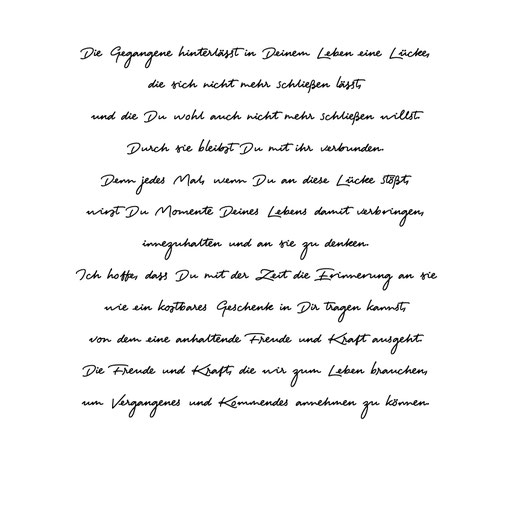 Die Gegangene hinterlässt in Deinem Leben eine Lücke,
die sich nicht mehr schließen lässt,
und die Du wohl auch nicht mehr schließen willst.
Durch sie bleibst Du mit ihr verbunden.
Denn jedes Mal, wenn Du an diese Lücke stößt,
wirst Du Momente Deines Lebens damit verbringen,
innezuhalten und an sie zu denken.
Ich hoffe, dass Du mit der Zeit die Erinnerung an sie
wie ein kostbares Geschenk in Dir tragen kannst,
von dem eine anhaltende Freude und Kraft ausgeht.
Die Freude und Kraft, die wir zum Leben brauchen,
um Vergangenes und Kommendes annehmen zu können.